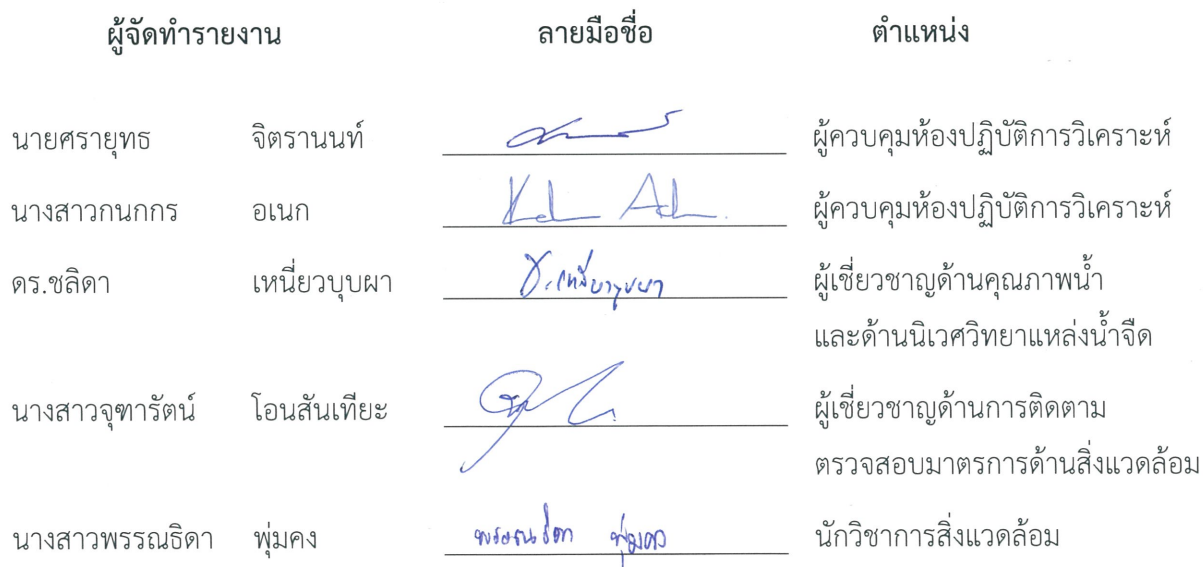 ผู้จัดทำรายงาน ลายมือชื่อ ตำแหน่ง
นายศรายุทธ จิตรานนท์ ผู้ควบคุมห้องปฏิบัติการวิเคราะห์
นางสาวกนกกร อเนก ผู้ควบคุมห้องปฏิบัติการวิเคราะห์
ดร.ชลิดา เหนี่ยวบุบผา ช.เหนี่ยวบุบผา ผู้เชี่ยวชาญด้านคุณภาพน้ำ
และด้านนิเวศวิทยาแหล่งน้ำจืด
นางสาวจุฑารัตน์ โอนสันเทียะ ผู้เชี่ยวชาญด้านการติดตาม
ตรวจสอบมาตรการด้านสิ่งแวดล้อม
นางสาวพรรณธิดา พุ่มคง พรรณธิดา พุ่มคง นักวิชาการสิ่งแวดล้อม